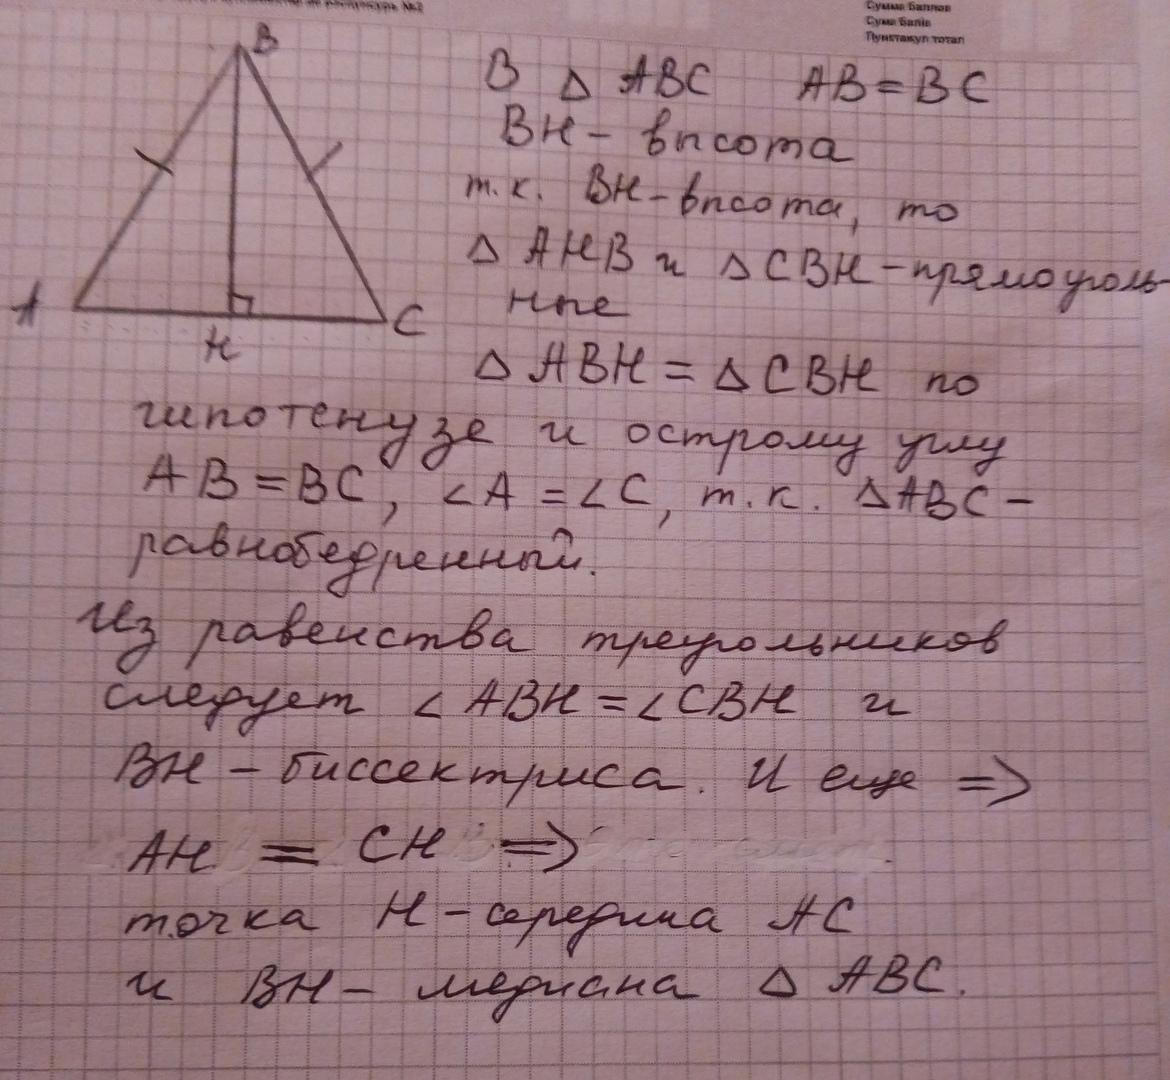 Сумма баллов
Сума балів
Пунктажул тотал
B
A
H
C
В △ ABC AB = BC
BH - высота
т.к. BH - высота, то
△ AHB и △ CBH - прямоуголь-
ные
△ ABH = △ CBH по
гипотенузе и острому углу
AB = BC, ∠A = ∠C, т.к. △ABC -
равнобедренный.
Из равенства треугольников
следует ∠ ABH = ∠CBH и
BH - биссектриса. И еще =>
AH = CH =>
точка H - середина AC
и BH - медиана △ ABC.